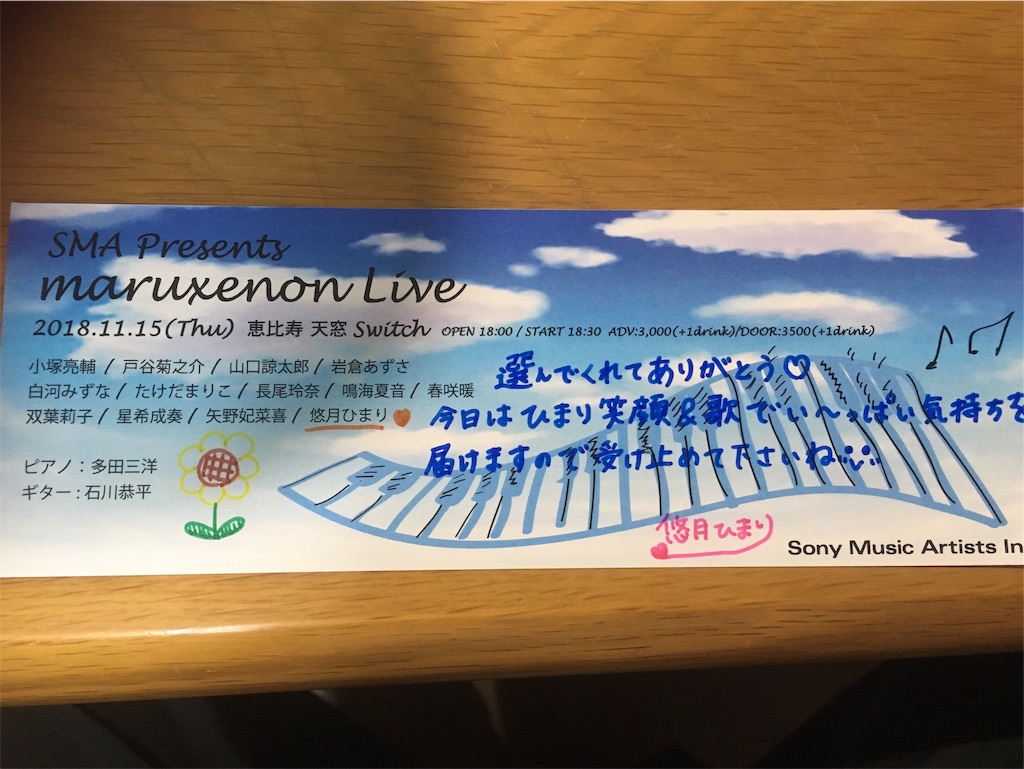 SMA Presents
maruxenon Live
2018.11.15(Thu) 恵比寿 天窓 Switch OPEN 18:00 / START 18:30 ADV:3,000(+1drink)/DOOR:3500(+1drink)
小塚亮輔 / 戸谷菊之介 / 山口諒太郎 / 岩倉あずさ
白河みずな / たけだまりこ / 長尾玲奈 / 鳴海夏音 / 春咲暖
双葉莉子 / 星希成奏 / 矢野妃菜喜 / 悠月ひまり
ピアノ：多田三洋
ギター：石川恭平
選んでくれてありがとう♡
今日はひまり笑顔&歌でい〜っぱい気持ちを
届けますので受け止めて下さいね
悠月ひまり
Sony Music Artists In